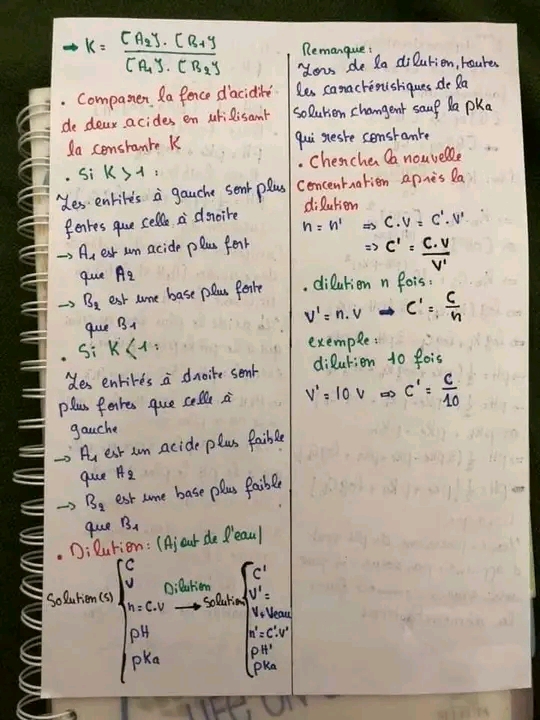 → K = [A2]. [B1]
[A1]. [B2]
• Comparer la force d'acidité
de deux acides en utilisant
la constante K
• Si K > 1 :
Les entités à gauche sont plus
fortes que celle à droite
→ A1 est un acide plus fort
que A2
→ B2 est une base plus forte
que B1
• Si K < 1 :
Les entités à droite sont
plus fortes que celle à
gauche
→ A1 est un acide plus faible
que A2
→ B2 est une base plus faible
que B1
• Dilution : (Ajout de l'eau)
Solution(s) { C
V
n = C.V
pH
pKa
Dilution →
Solution { C'
V' =
V + Veau
n' = C'.V'
pH'
pKa
Remarque :
Lors de la dilution, toutes
les caractéristiques de la
solution changent sauf la pKa
qui reste constante
• Chercher la nouvelle
concentration après la
dilution
n = n' ⇒ C.V = C'.V'
⇒ C' = C.V
V'
• dilution n fois :
V' = n.V ⇒ C' = C
n
exemple :
dilution 10 fois
V' = 10 V ⇒ C' = C
10